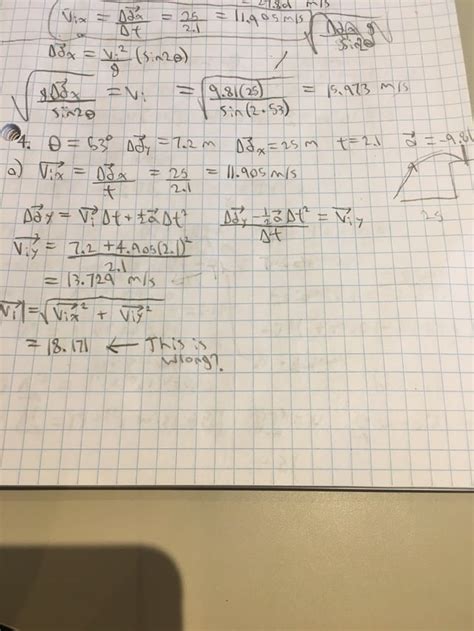 Vix = Δdx/Δt = 25/2.1 = 11.905 m/s
Δdx = Vi²/g (sin2θ)
√(gΔdx/sin2θ) = Vi = √(9.81(25)/sin(2·53)) = 15.973 m/s
4. θ = 53° Δdy = 7.2 m Δdx = 25 m t = 2.1 a = -9.81
a) Vix = Δdx/t = 25/2.1 = 11.905 m/s
25
Δdy = Vi Δt + ½aΔt² (Δdy - ½aΔt²)/Δt = Viy
Viy = (7.2 + 4.905(2.1)²)/2.1
= 13.729 m/s
|Vi| = √(Vix² + Viy²)
= 18.171 ← This is
wrong?